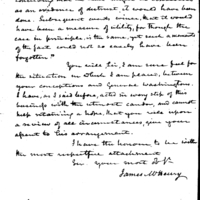 as an evidence of distrust, it would have been
done. Subsequent events must, but it would
have been a measure of utility, for though the
case in principle, is the same, yet such amounts
of the fact could not so easily have been
forgotten."
You will Sir, I am sure feel for
the situation in which I am placed, between
your conceptions and General Washington's.
I have, as I said before, acted in every step of this
business with the utmost candour, and cannot
help retaining a hope, that you will upon
a review of all circumstances, give your
assent to his arrangement.
I have the honour to be with
the most respectful attachment
Sir, your most
James McHenry